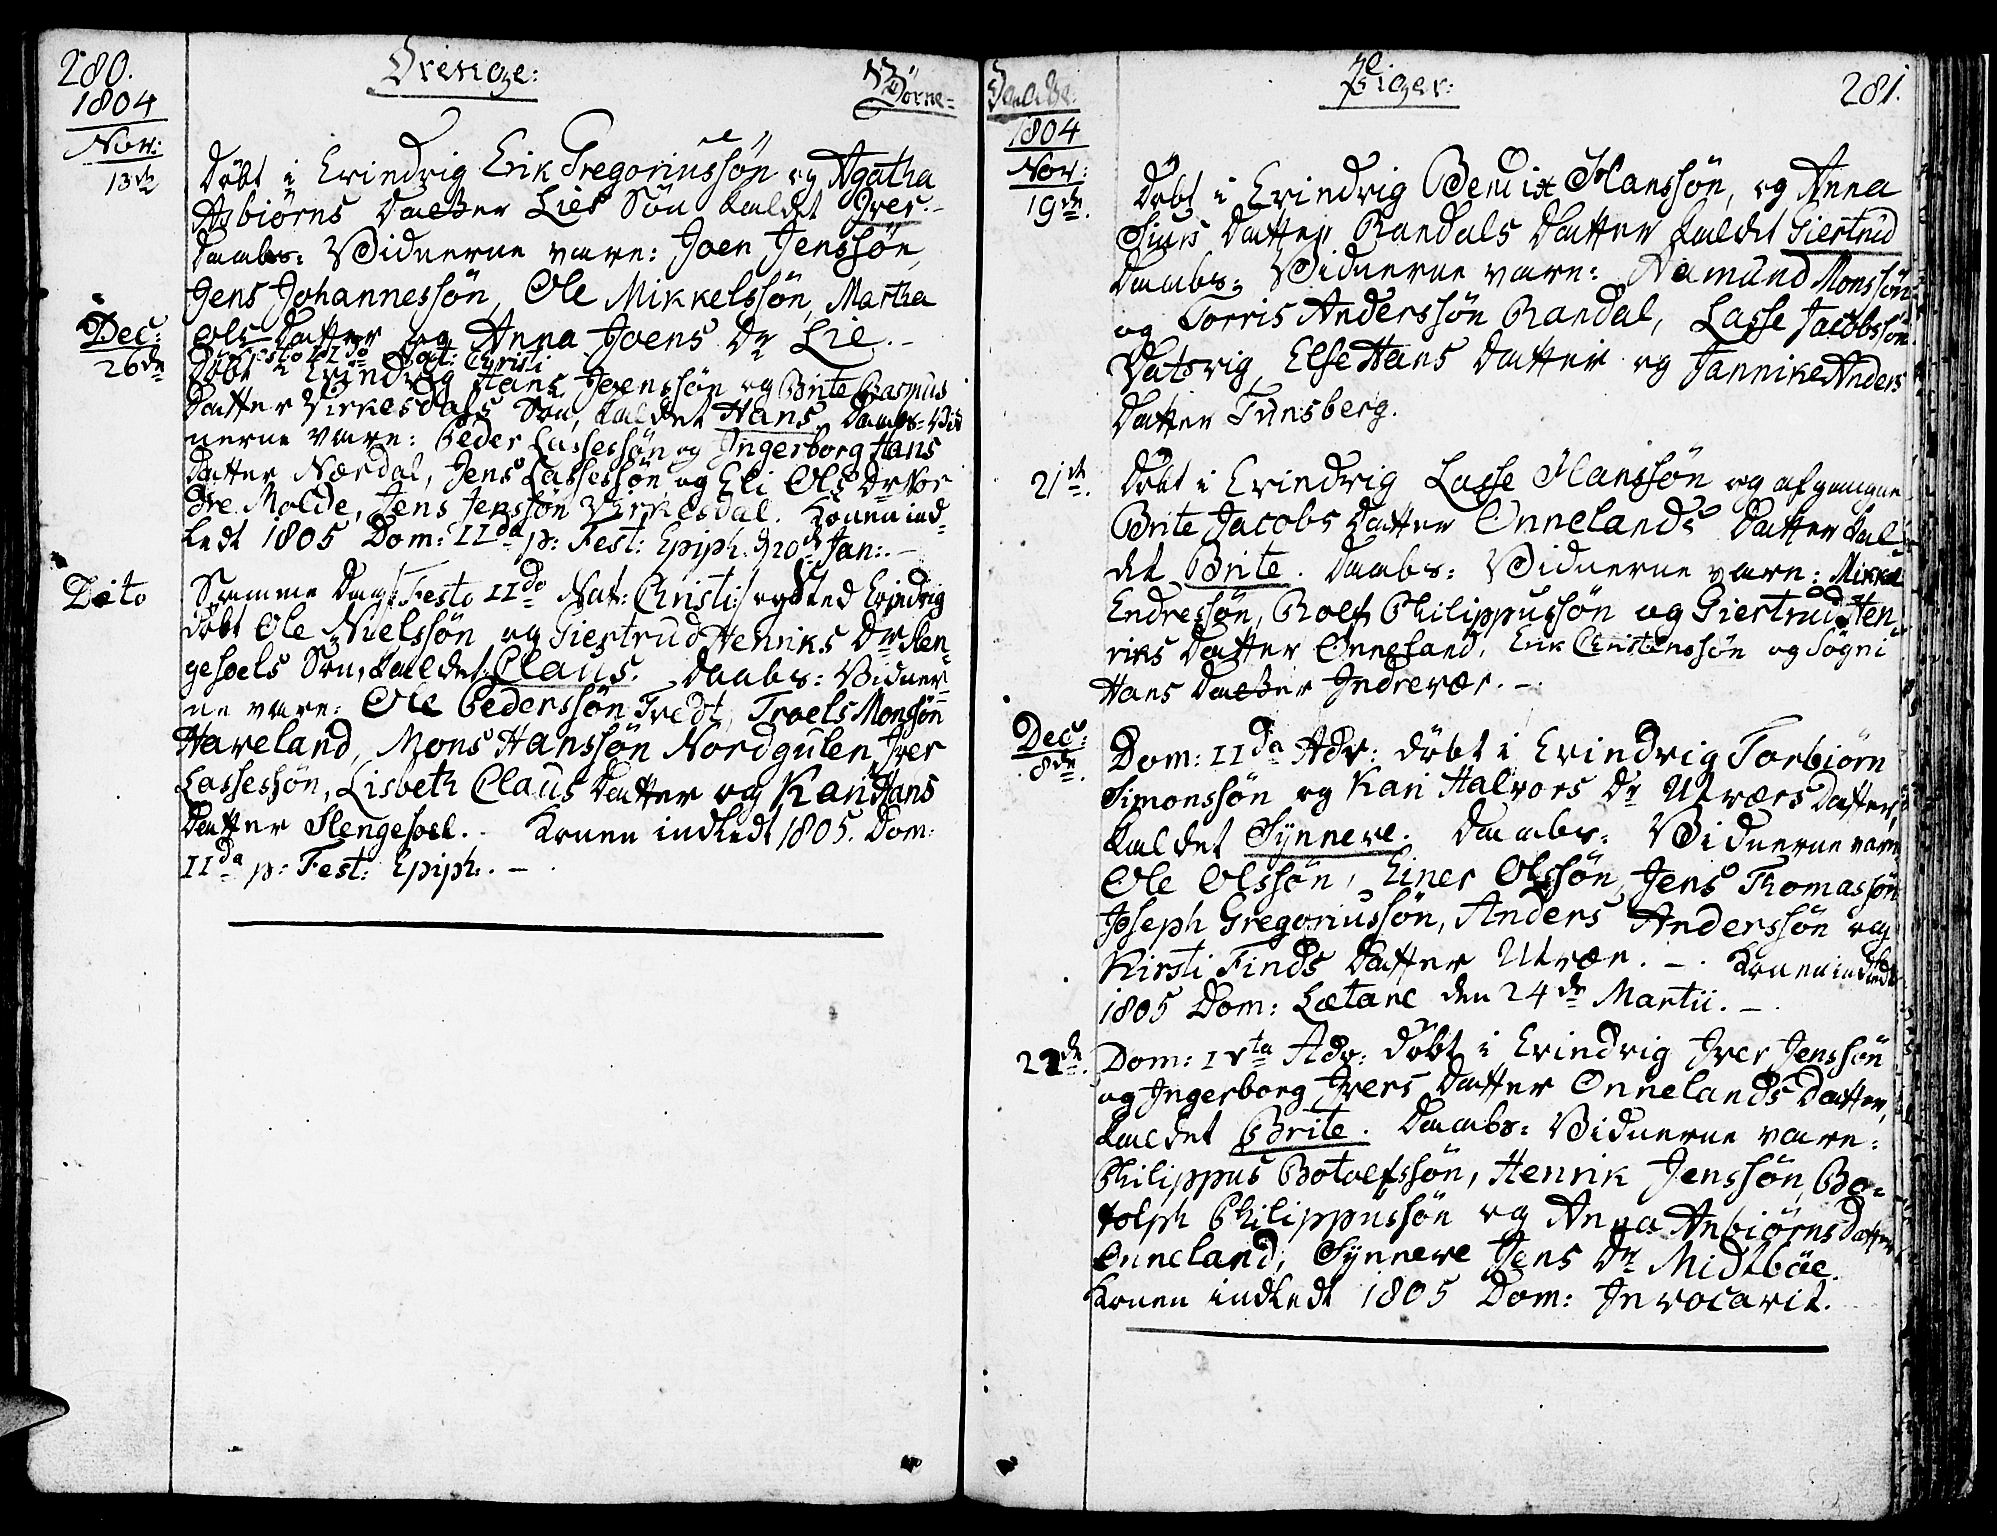 280.
Drenge:
Børne=
1804
Nov:
13de
Døbt i Evindvig Erik Gregoriussøn og Agatha
Asbiørns Datter Lies Søn kaldet Iver.-
Daabs= Vidnerne vare: Joen Jenssøn,
Jens Johannessøn, Ole Mikkelssøn, Martha
Ols Datter og Anna Joens Dr Lie.-
Dec:
26de
Festo IIdo Nat: Christi
Døbt i Evindvig Hans Jenssøn og Brite Rasmus
Datter Virkesdals Søn, kaldet Hans. Daabs= Vid
nerne vare: Peder Lassessøn og Ingerborg Hans
Datter Nærdal, Jens Lassessøn og Eli Ols Dr Nor
dre Molde, Jens Jenssøn Virkesdal. Konen ind=
ledt 1805 Dom: IIda p: Fest: Epiph. d 20de Jan:.-
Dito
Samme Dag /: Festo IIdo Nat: Christi :/ og Sted Evindvig
døbt Ole Nielssøn og Giertrud Henriks Dr Slen=
gesoels Søn, kaldet Claus. Daabs= Vidner=
ne vare: Ole Pedersøn Tredt, Troels Monssøn
Haveland, Mons Hanssøn Nordgulen, Iver
Lassessøn, Lisbeth Claus Datter og Kari Hans
Datter Slengesoel. Konen indledt 1805. Dom:
IIda p: Fest: Epiph.. -
Daabe:
Piger:
281.
1804
Nov:
19de.
Døbt i Evindvig Bendix Hanssøn, og Anna
Siurs Datter Randals Datter kaldet Giertrud
Daabs= Vidnerne vare: Aamund Monssøn
og Torris Anderssøn Randal, Lasse Jacobssøn
Vatsvig, Else Hans Datter og Jannike Anders
Datter Tunsberg.
21de.
Døbt i Evindvig Lasse Hanssøn og afgangne
Brite Jacobs Datter Onnelands Datter kal
det Brite. Daabs= Vidnerne vare: Mikkel
Endressøn, Rolf Philippussøn og Giertrud Hen
riks Datter Onneland, Erik Christenssøn og Søgni
Hans Datter Indrevær. -
Dec:
8de.
Dom: IIda Adv: døbt i Evindvig Torbiørn
Simonssøn og Kari Halvors Dr Utværs Datter,
kaldet Synneve. Daabs= Vidnerne vare
Ole Olssøn, Einer Olssøn, Jens Thomassøn
Joseph Gregoriussøn, Anders Anderssøn og
Kirsti Finds Datter Utvær. -. Konen indledt
1805 Dom: Lætare den 24de Martii. -
22de.
Dom: IVta Adv: døbt i Evindvig Iver Jenssøn
og Ingerborg Ivers Datter Onnelands Datter,
kaldet Brite. Daabs= Vidnerne vare:
Philippus Botolfssøn, Henrik Jenssøn, Bo=
tolph Philippussøn og Anna Anbiørns Datter
Onneland, Synneve Jens Dr Midtbøe.
Konen indledt 1805 Dom: Invocavit.